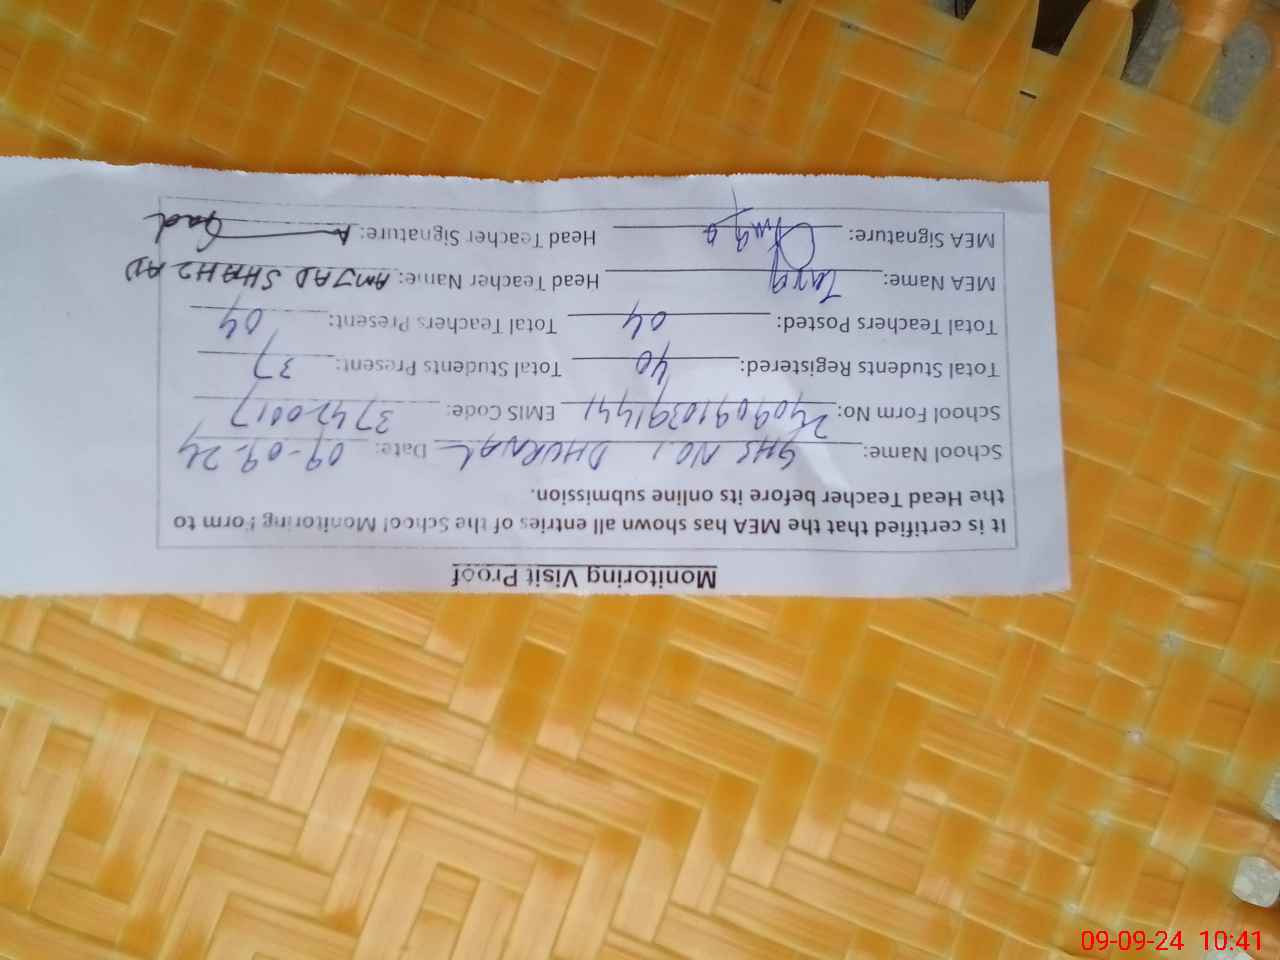 Monitoring Visit Proof
It is certified that the MEA has shown all entries of the School Monitoring Form to
the Head Teacher before its online submission.
School Name: GHS NO.1 DHURNAL Date: 09-09-24
School Form No: 24090910391441 EMIS Code: 37420017
Total Students Registered: 40 Total Students Present: 37
Total Teachers Posted: 04 Total Teachers Present: 04
MEA Name: Head Teacher Name: AMJAD SHAHZAD
MEA Signature: Head Teacher Signature:
09-09-24 10:41